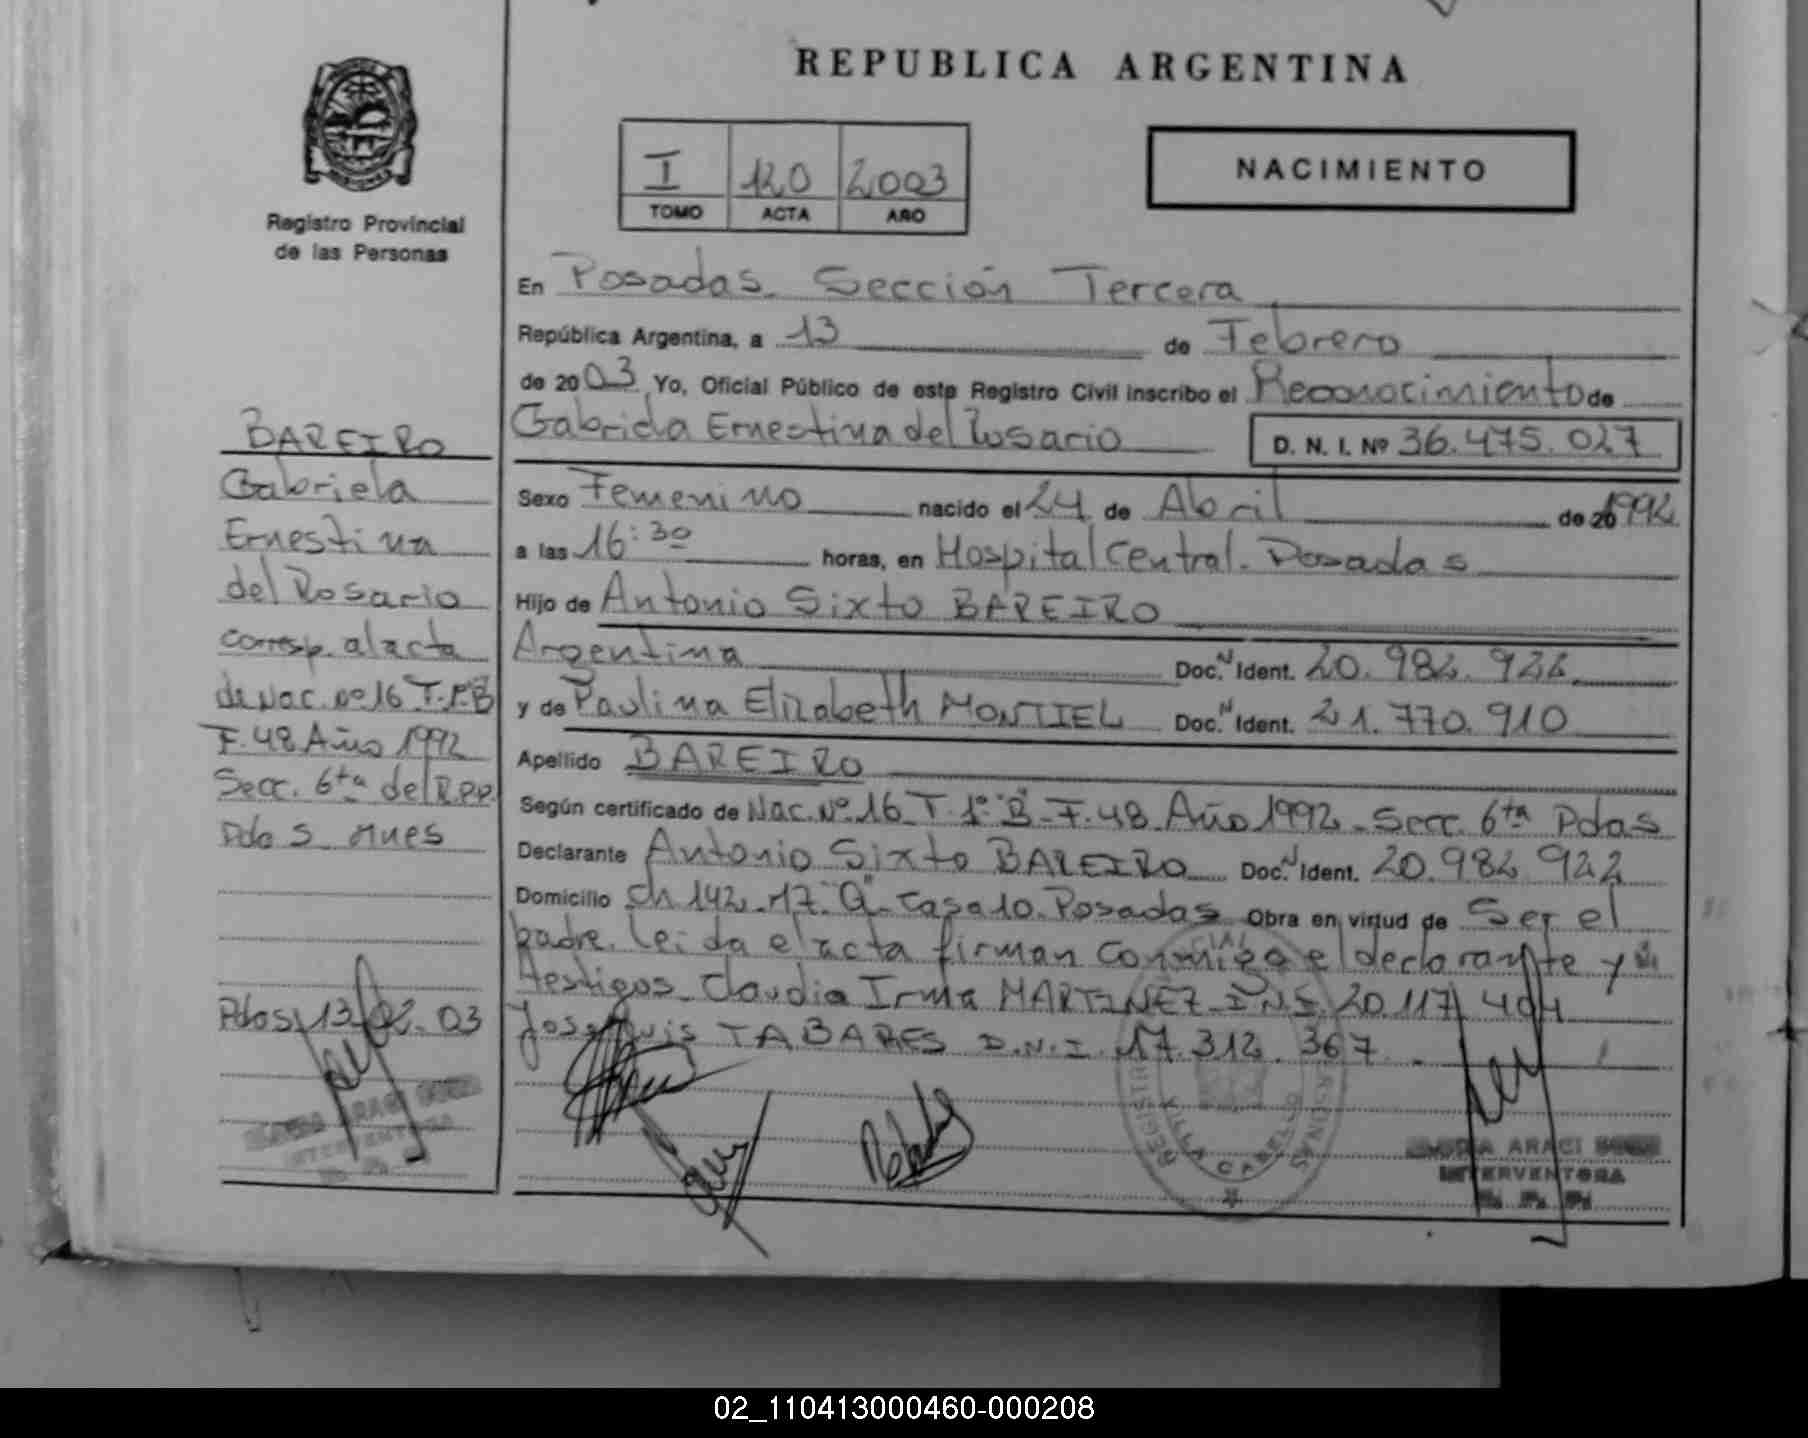 REPUBLICA ARGENTINA
Registro Provincial
de las Personas
I 120 2003
TOMO ACTA AÑO
NACIMIENTO
En Posadas. Sección Tercera
República Argentina, a 13 de Febrero
de 2003 Yo, Oficial Público de este Registro Civil inscribo el Reconocimiento de
Gabriela Ernestina del Rosario D. N. I. Nº 36.475.027
Sexo Femenino nacido el 24 de Abril de 20 1992
a las 16:30 horas, en Hospital Central. Posadas
Hijo de Antonio Sixto BAREIRO
Argentina Doc. N Ident. 20.982.922
y de Paulina Elizabeth MONTIEL Doc. N Ident. 21.770.910
Apellido BAREIRO
Según certificado de Nac. Nº 16 T. 1º "B" F. 48 Año 1992 - Secc. 6ta Pdas
Declarante Antonio Sixto BAREIRO Doc. N Ident. 20.982 922
Domicilio Ch 142-17-"Q"-Casa 10. Posadas Obra en virtud de Ser el
padre. Leida el acta firman conmigo el declarante y
testigos. Claudia Irma MARTINEZ D.N.I. 20.117.404
Jose Luis TABARES D.N.I. 17.312.367
BAREIRO
Gabriela
Ernestina
del Rosario
corresp. al acta
de Nac. Nº 16 T. 1º B
F. 48 Año 1992
Secc. 6ta del R.P.P.
Pdas Mnes
Pdas 13-02-03
ARACI
INTERVENTORA
VILLA CABELLO
ARACI
INTERVENTORA
02_110413000460-000208